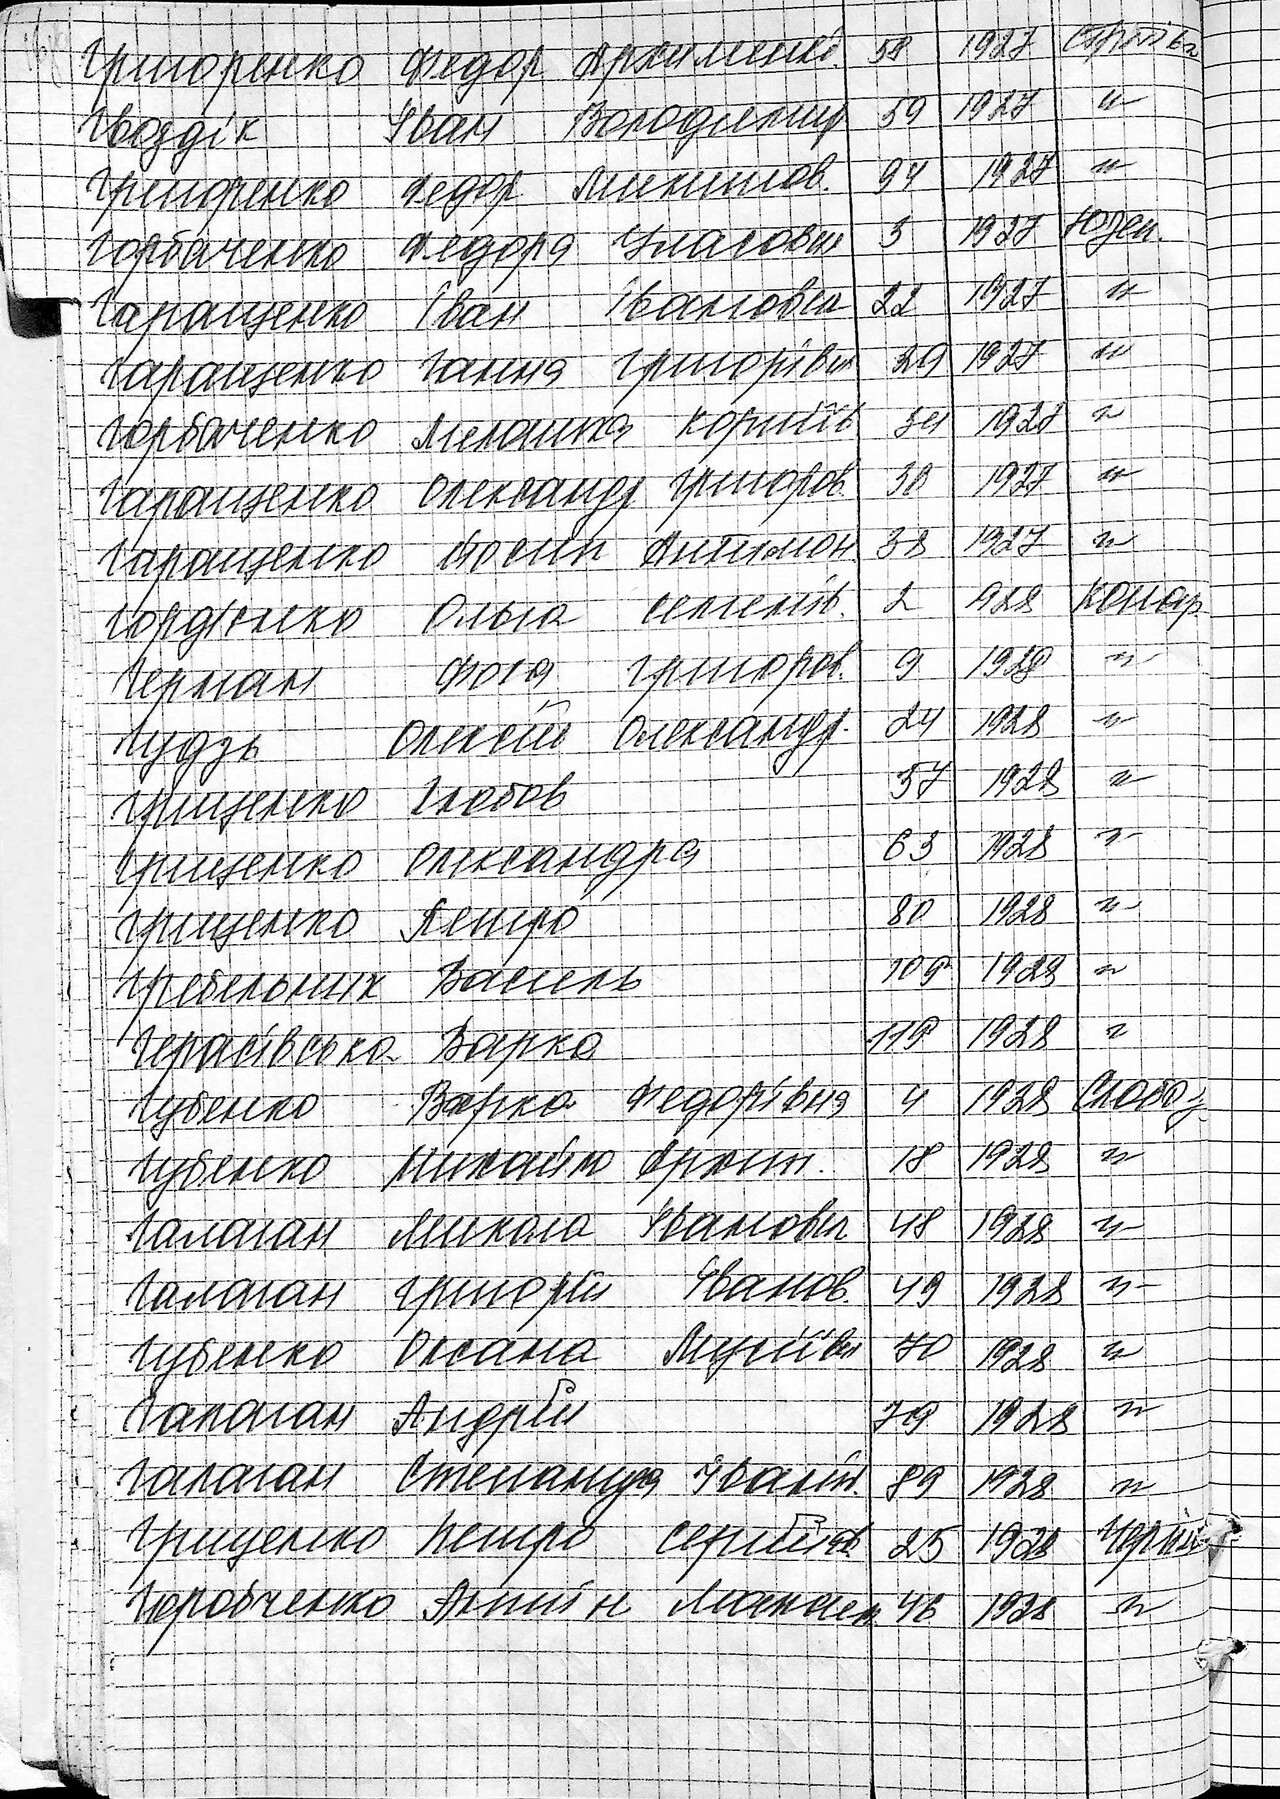 Григоренко Федор Архименкі. 58 1927 Стрїївк
Гвоздік Іван Володимир 59 1927 "
Григоренко Федор Микитов. 94 1927 "
Горбаченко Федора Уласовн 5 1927 Юзеп.
Гаращенко Іван Іванович 22 1927 "
Гаращенко Ганна Григорівн 29 1927 "
Горбаченко Меланка Корніїв 34 1927 "
Гаращенко Олександр Григоров. 30 1927 "
Гаращенко Йосип Антимон. 38 1927 "
Гордієнко Ольга Семенів. 2 928 Конар
Герман Фога Григоров. 9 1928 "
Гудзь Олексій Олександр. 24 1928 "
Грищенко Глобов 57 1928 "
Грищенко Олександра 63 1928 "
Грищенко Петро 80 1928 "
Гребельник Василь 109 1928 "
Герасівська Варка 119 1928 "
Губенко Варка Федорівна 4 1928 Слобод
Губенко Михайло Архип. 18 1928 "
Галаган Микола Іванович 48 1928 "
Галаган Григорій Іванов. 49 1928 "
Губенко Оксана Мусіївн 70 1928 "
Галаган Андрій 79 1928 "
Галаган Степанида Іванів. 89 1928 "
Грищенко Петро Сергійов. 25 1928
Горобченко Антін 46 1928 "